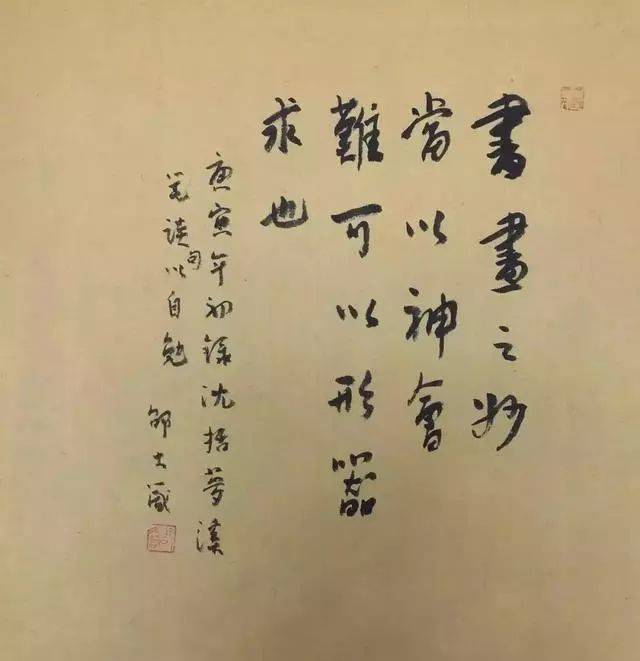 書畫之妙
當以神會
難可以形器
求也
庚寅年初錄沈括夢溪
笔談句以自勉 邵大箴